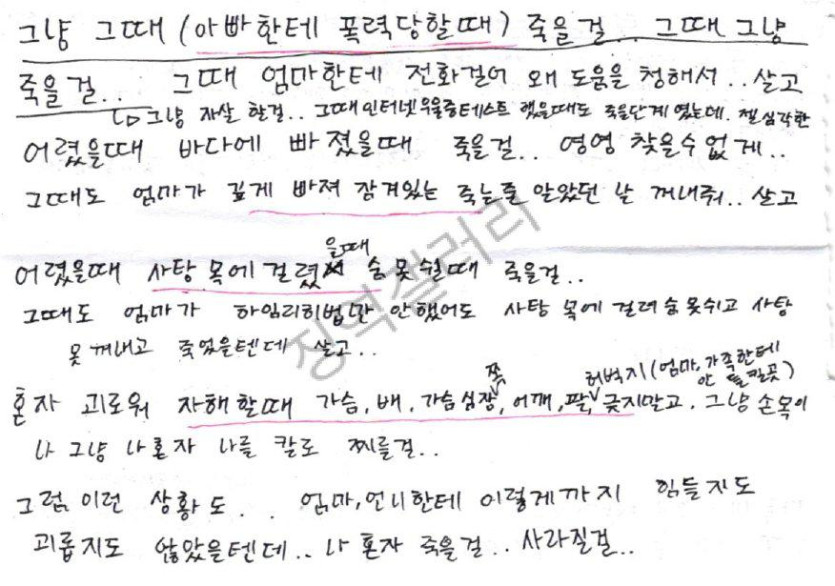 그냥 그때 (아빠한테 폭력당할때) 죽을걸.. 그때 그냥
죽을 걸.. 그때 엄마한테 전화걸어 왜 도움을 청해서.. 살고
↳ 그냥 자살 할걸.. 그때 인터넷 우울증테스트 했을때도 죽을단계 였는데. 젤 심각한
어렸을때 바다에 빠졌을때 죽을걸.. 영영 찾을수 없게..
그때도 엄마가 깊게 빠져 잠겨있는 죽는줄 알았던 날 꺼내줘.. 살고
어렸을때 사탕 목에 걸렸을때 숨 못쉴때 죽을걸..
그때도 엄마가 하임리히법만 안했어도 사탕 목에 걸려 숨 못쉬고 사탕
못 꺼내고 죽었을텐데 살고..
혼자 괴로워 자해할때 가슴, 배, 가슴 심장쪽, 어깨, 팔, 허벅지(엄마, 가족한테 안 들킬곳) 긋지말고. 그냥 손목이
나 그냥 나혼자 나를 칼로 찌를걸..
그럼 이런 상황도.. 엄마, 언니한테 이렇게까지 힘들지도
괴롭지도 않았을텐데.. 나 혼자 죽을걸.. 사라질걸..
징역갤러리